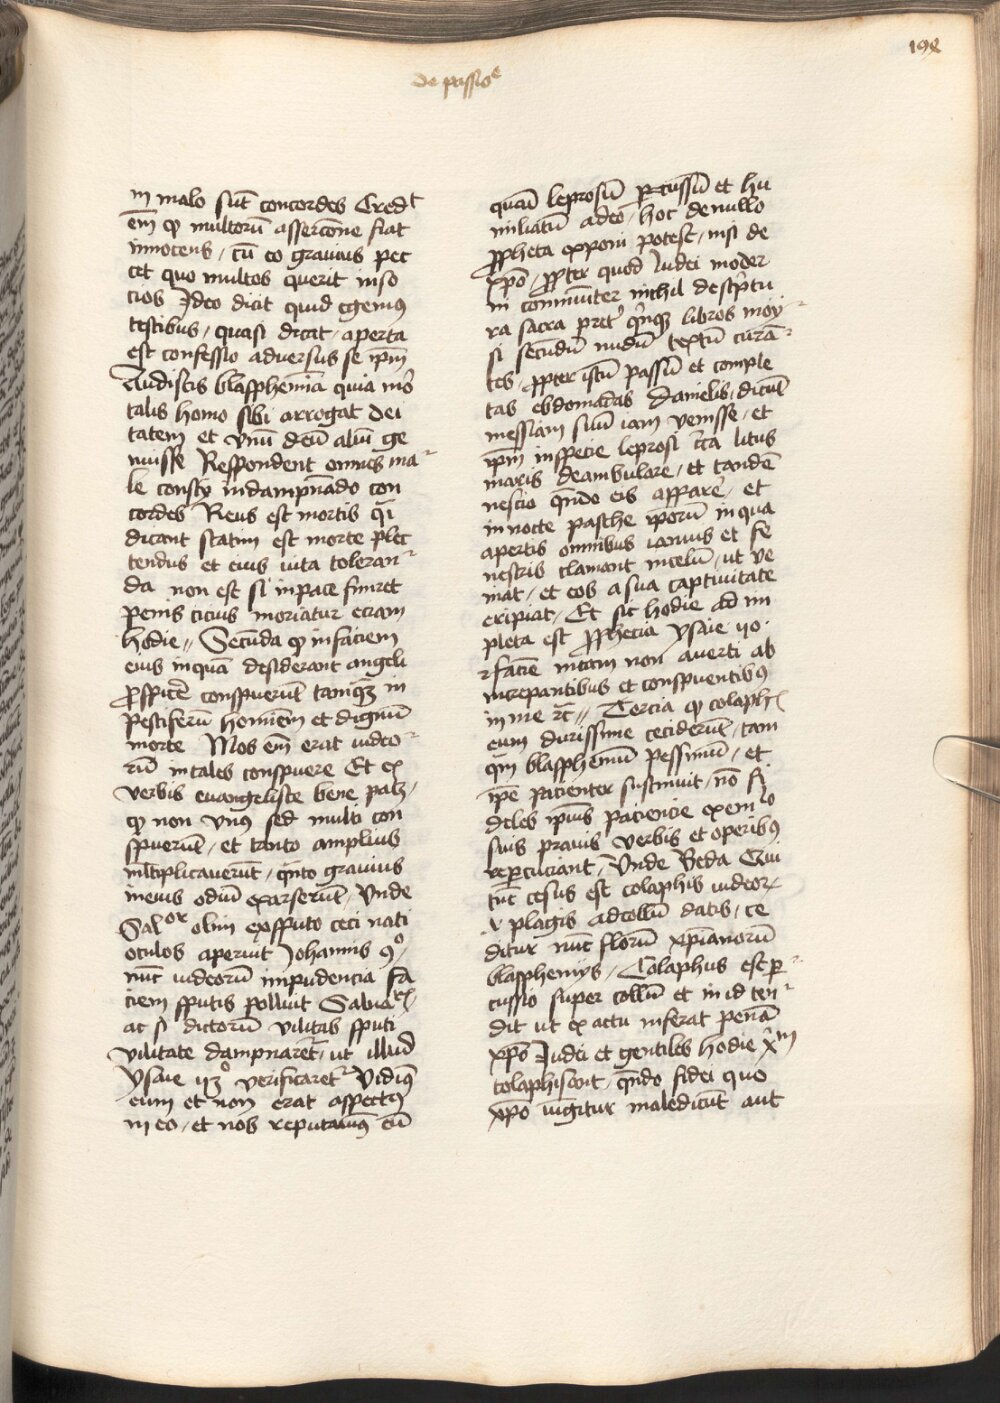 de passioe
198
in malo sūt concordes Credt
em̄ qꝫ multorū assercōne fiat
innocens / cū eo grauius pec
cet quo multos querit in so
cios Ideo dicit quid egemꝰ
testibus / quasi dicat / aperta
est confessio aduersus se ipm̄
Audistis blasphemiā quia mor
talis homo sibi arrogat dei
tatem et vnū deū aliū ge
nuisse Respondent omnes ma
le in dampnādo con
cordes Reus est mortis q̄i
dicant statim est morte plec
tendus et eius vita toleran
da non est si in pace finiret
penis cicius moriatur eciam
hodie // Secūda qꝫ in faciem
eius in quā desiderant angeli
ꝓspicē conspuerūt tamqꝫ in
pestiferū hominem et dignū
morte Mos em̄ erat iudeo
rū in tales conspuere Et ex
verbis euangeliste bene patꝫ /
qꝫ non vnꝰ sed multi con
spuerūt / et tanto amplius
mltiplicauerūt / qn̄to grauius
in eius odiū exarserūt / Vnde
Saluor olim ex sputo ceci nati
oculos aperuit Johannis 9o /
nūc iudeorū impudencia fa
ciem sputis polluit Saluaris
ac si dictorū vilitas sputi
vilitate dampnaret / ut illud
Ysaie verificaret Vidimꝰ
eum et non erat aspectꝰ
in eo / et nos reputauimꝰ eū
quasi leprosū percussū et hu
miliatū a deo / hoc de nullo
ꝓpheta exponi potest / nisi de
xp̄o / ꝓpter quod Judei moder
ni communiter nichil de scriptu
ra sacra preter quinqꝫ libros moy
si secundū nudū textū curā
tes / ꝓpter istū passū et comple
tas ebdomadas Danielis / dicūt
messiam suū iam venisse / et
ipm̄ in specie leprosi circa litus
maris deambulare / et tandē
nescio qn̄do eis apparē / et
in nocte pasche ipsorū in qua
apertis omnibus ianuis et fe
nestris clamant in celū / ut ve
niat / et eos a sua captiuitate
eripiat / Et sic hodie ad im
pleta est ꝓphecia Ysaie
Faciē meam non auerti ab
increpantibus et conspuentibꝰ
in me ⁊c̄ // Tercia qꝫ colaph
eum durissime ceciderūt / tam
qm̄ blasphemū pessimū / et
ipē pacienter sustinuit / nō fi
deles ipsius paciencie exemplo
suis prauis verbis et operibꝰ
repercuciant / Vnde Beda Qui
tūc cesus est colaphis iudeorꝫ
v plagis ad collū datis / ce
ditur nūc florū xp̄ianorū
blasphemijs / Colaphus est per
cussio super collū et in id ten
dit ut ex actu inferat penā
xp̄o Judei et gentiles hodie xm
colaphisant / qn̄do fidei quo
xp̄o iungitur maledicūt aut